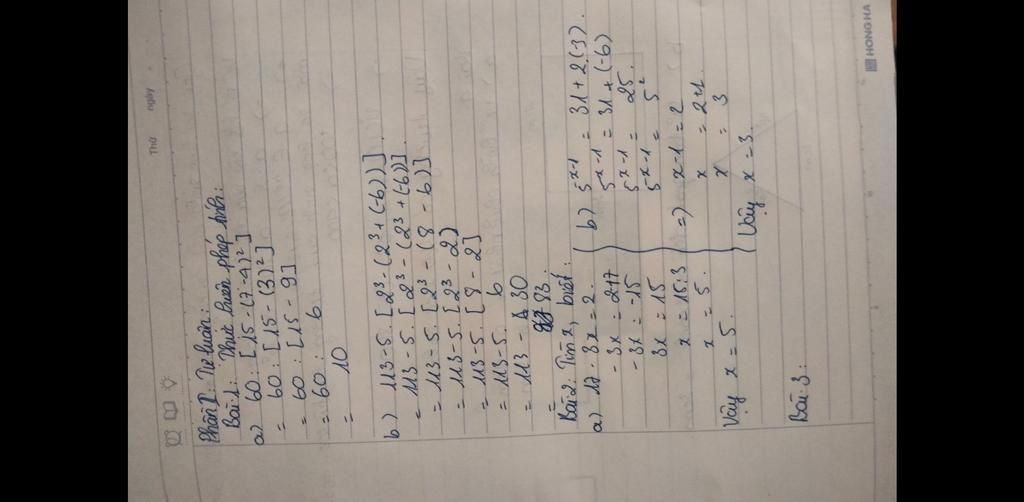 Thứ ngày
Phần II: Tự luận:
Bài 1: Thực hiện phép tính:
a) 60 : [15 - (7 - 4)²]
= 60 : [15 - (3)²]
= 60 : [15 - 9]
= 60 : 6
= 10
b) 113 - 5. [2³ - (2³ + (-6))].
= 113 - 5. [2³ - (2³ + (-6)].
= 113 - 5. [2³ - (8 - 6)]
= 113 - 5. [2³ - 2)
= 113 - 5. [8 - 2]
= 113 - 5. 6
= 113 - 30
= 83.
Bài 2: Tìm x, biết:
a) 17 - 3x = 2.
- 3x = 2-17
- 3x = -15
3x = 15
x = 15:3
x = 5.
Vậy x = 5.
b) 5ˣ⁻¹ = 31 + 2.(-3).
5ˣ⁻¹ = 31 + (-6)
5ˣ⁻¹ = 25.
5ˣ⁻¹ = 5²
=) x - 1 = 2
x = 2+1.
x = 3
Vậy x = 3.
Bài 3:
HONG HA